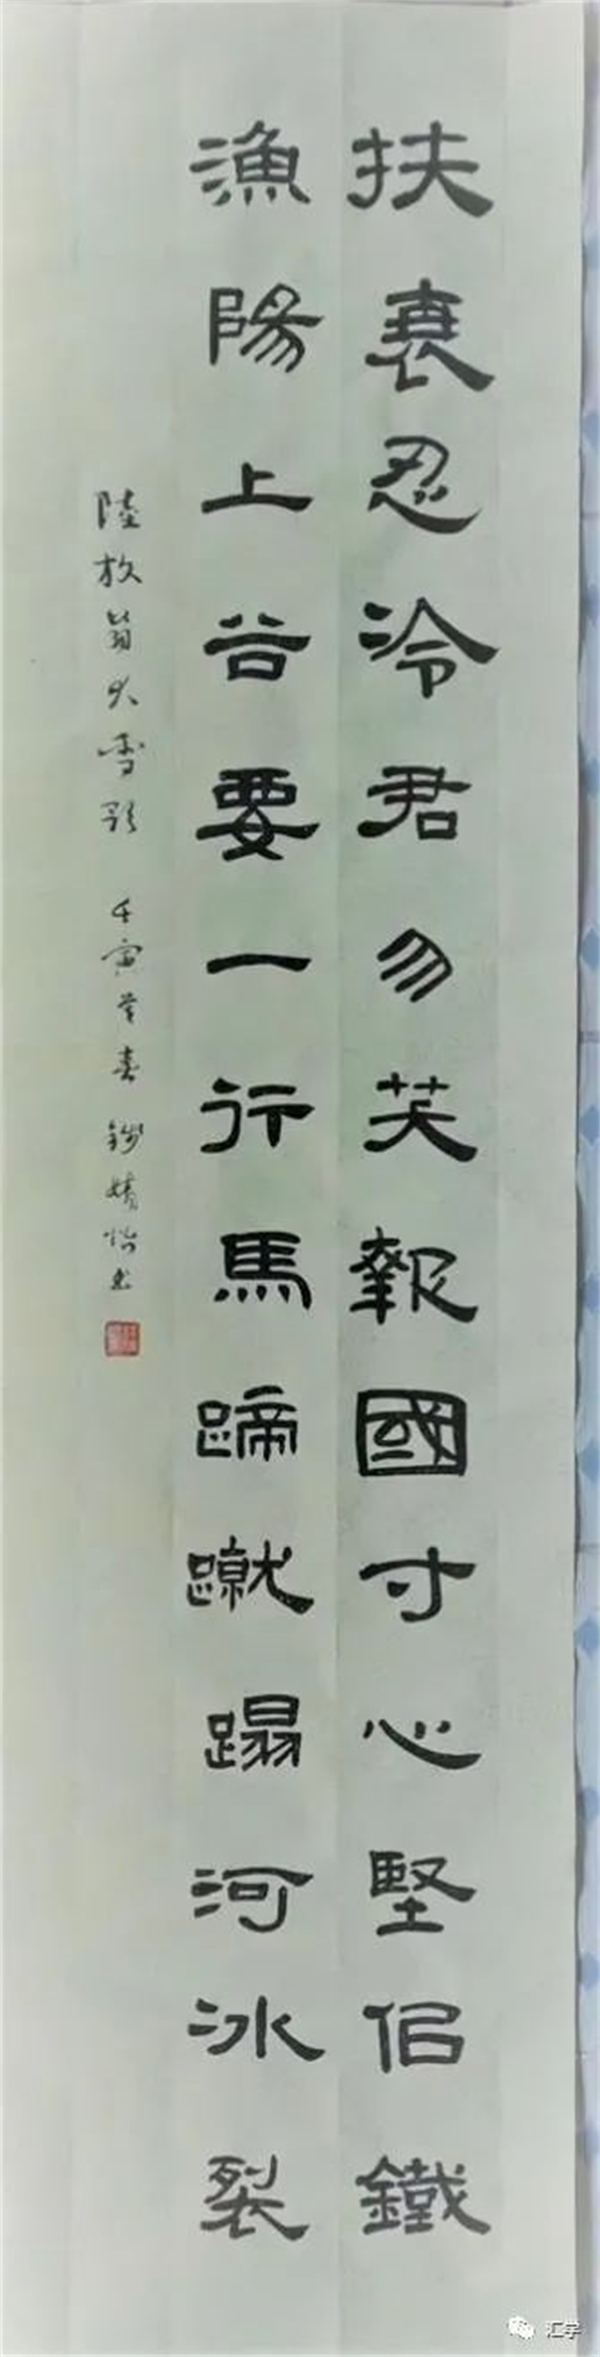 扶衰忍冷君勿笑報國寸心堅佀鐵
漁陽上谷要一行馬蹄蹴蹋河冰裂
陸放翁大雪歌 壬寅春 婧怡书
汇学